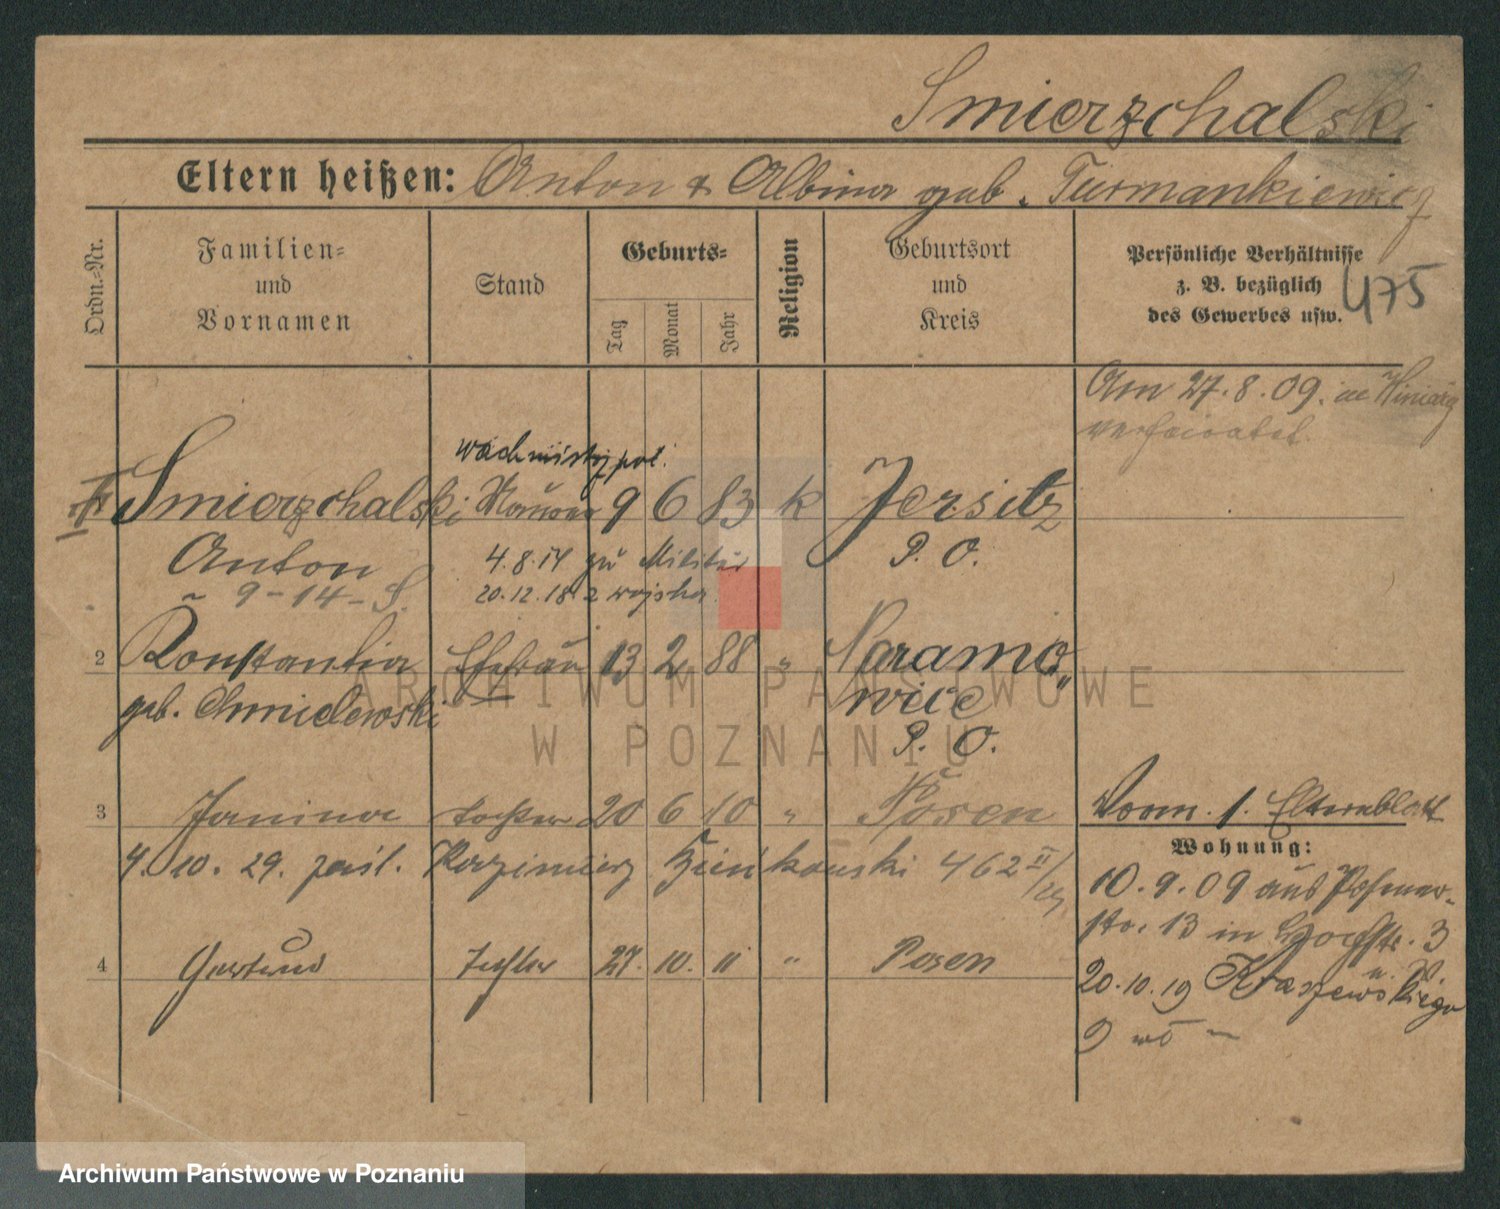 Smierzchalski
Eltern heißen: Anton & Albina geb. Turmankiewicz
Ordn.-Nr.
Familien-
und
Vornamen
Stand
Geburts-
Tag
Monat
Jahr
Religion
Geburtsort
und
Kreis
Persönliche Verhältnisse
z. B. bezüglich
des Gewerbes usw.
475
Am 27.8.09. in Winiary
verheiratet.
Smierzchalski
9 6 83 k Jersitz
Anton
4.8.14 zu Militär
P. O.
9-14-S.
20.12.18 z wojska
2 Konstantia Ehefrau 13 2 88 " Naramo„
geb. Chmielewski
wice
P. O.
3 Janina Tochter 20 6 10 " Posen
Vorn. 1. Elternblatt
Wohnung:
10.9.09 aus Posener-
str. 13 in 3
4. 10. 29. zaśl. Kazimierz 462 II/29.
4 Gertrud Tochter 27. 10. 11 " Posen
20.10.19 Kraszewskiego
9
ARCHIWUM PAŃSTWOWE
W POZNANIU
Archiwum Państwowe w Poznaniu